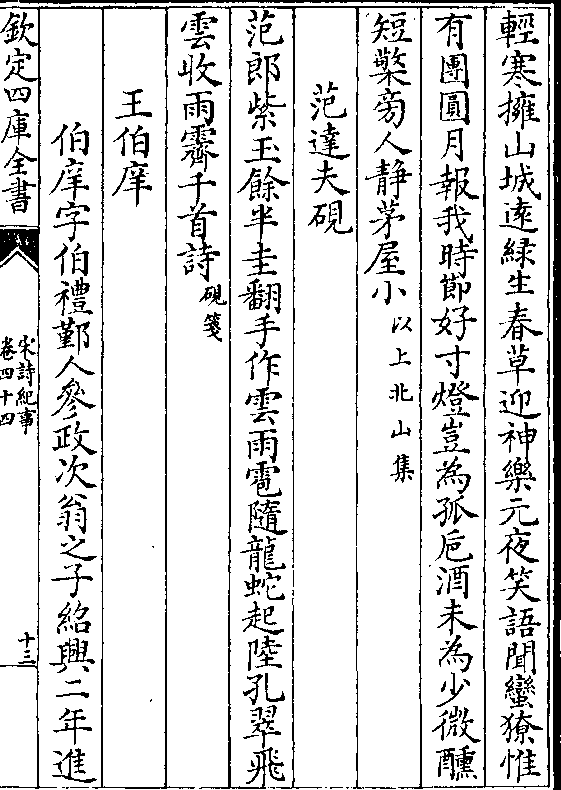 輕寒擁山城遠緑生春草迎神樂元夜笑語聞蠻獠惟
有團圓月報我時節好寸燈豈為孤巵酒未為少微醺
短檠旁人靜茅屋小以上北山集
范達夫硯
范郎紫玉餘半圭翻手作雲雨雹隨龍蛇起陸孔翠飛
雲收雨霽千首詩硯箋
王伯庠
伯庠字伯禮鄞人參政次翁之子紹興二年進
欽定四庫全書
宋詩紀事
卷四十四
十三